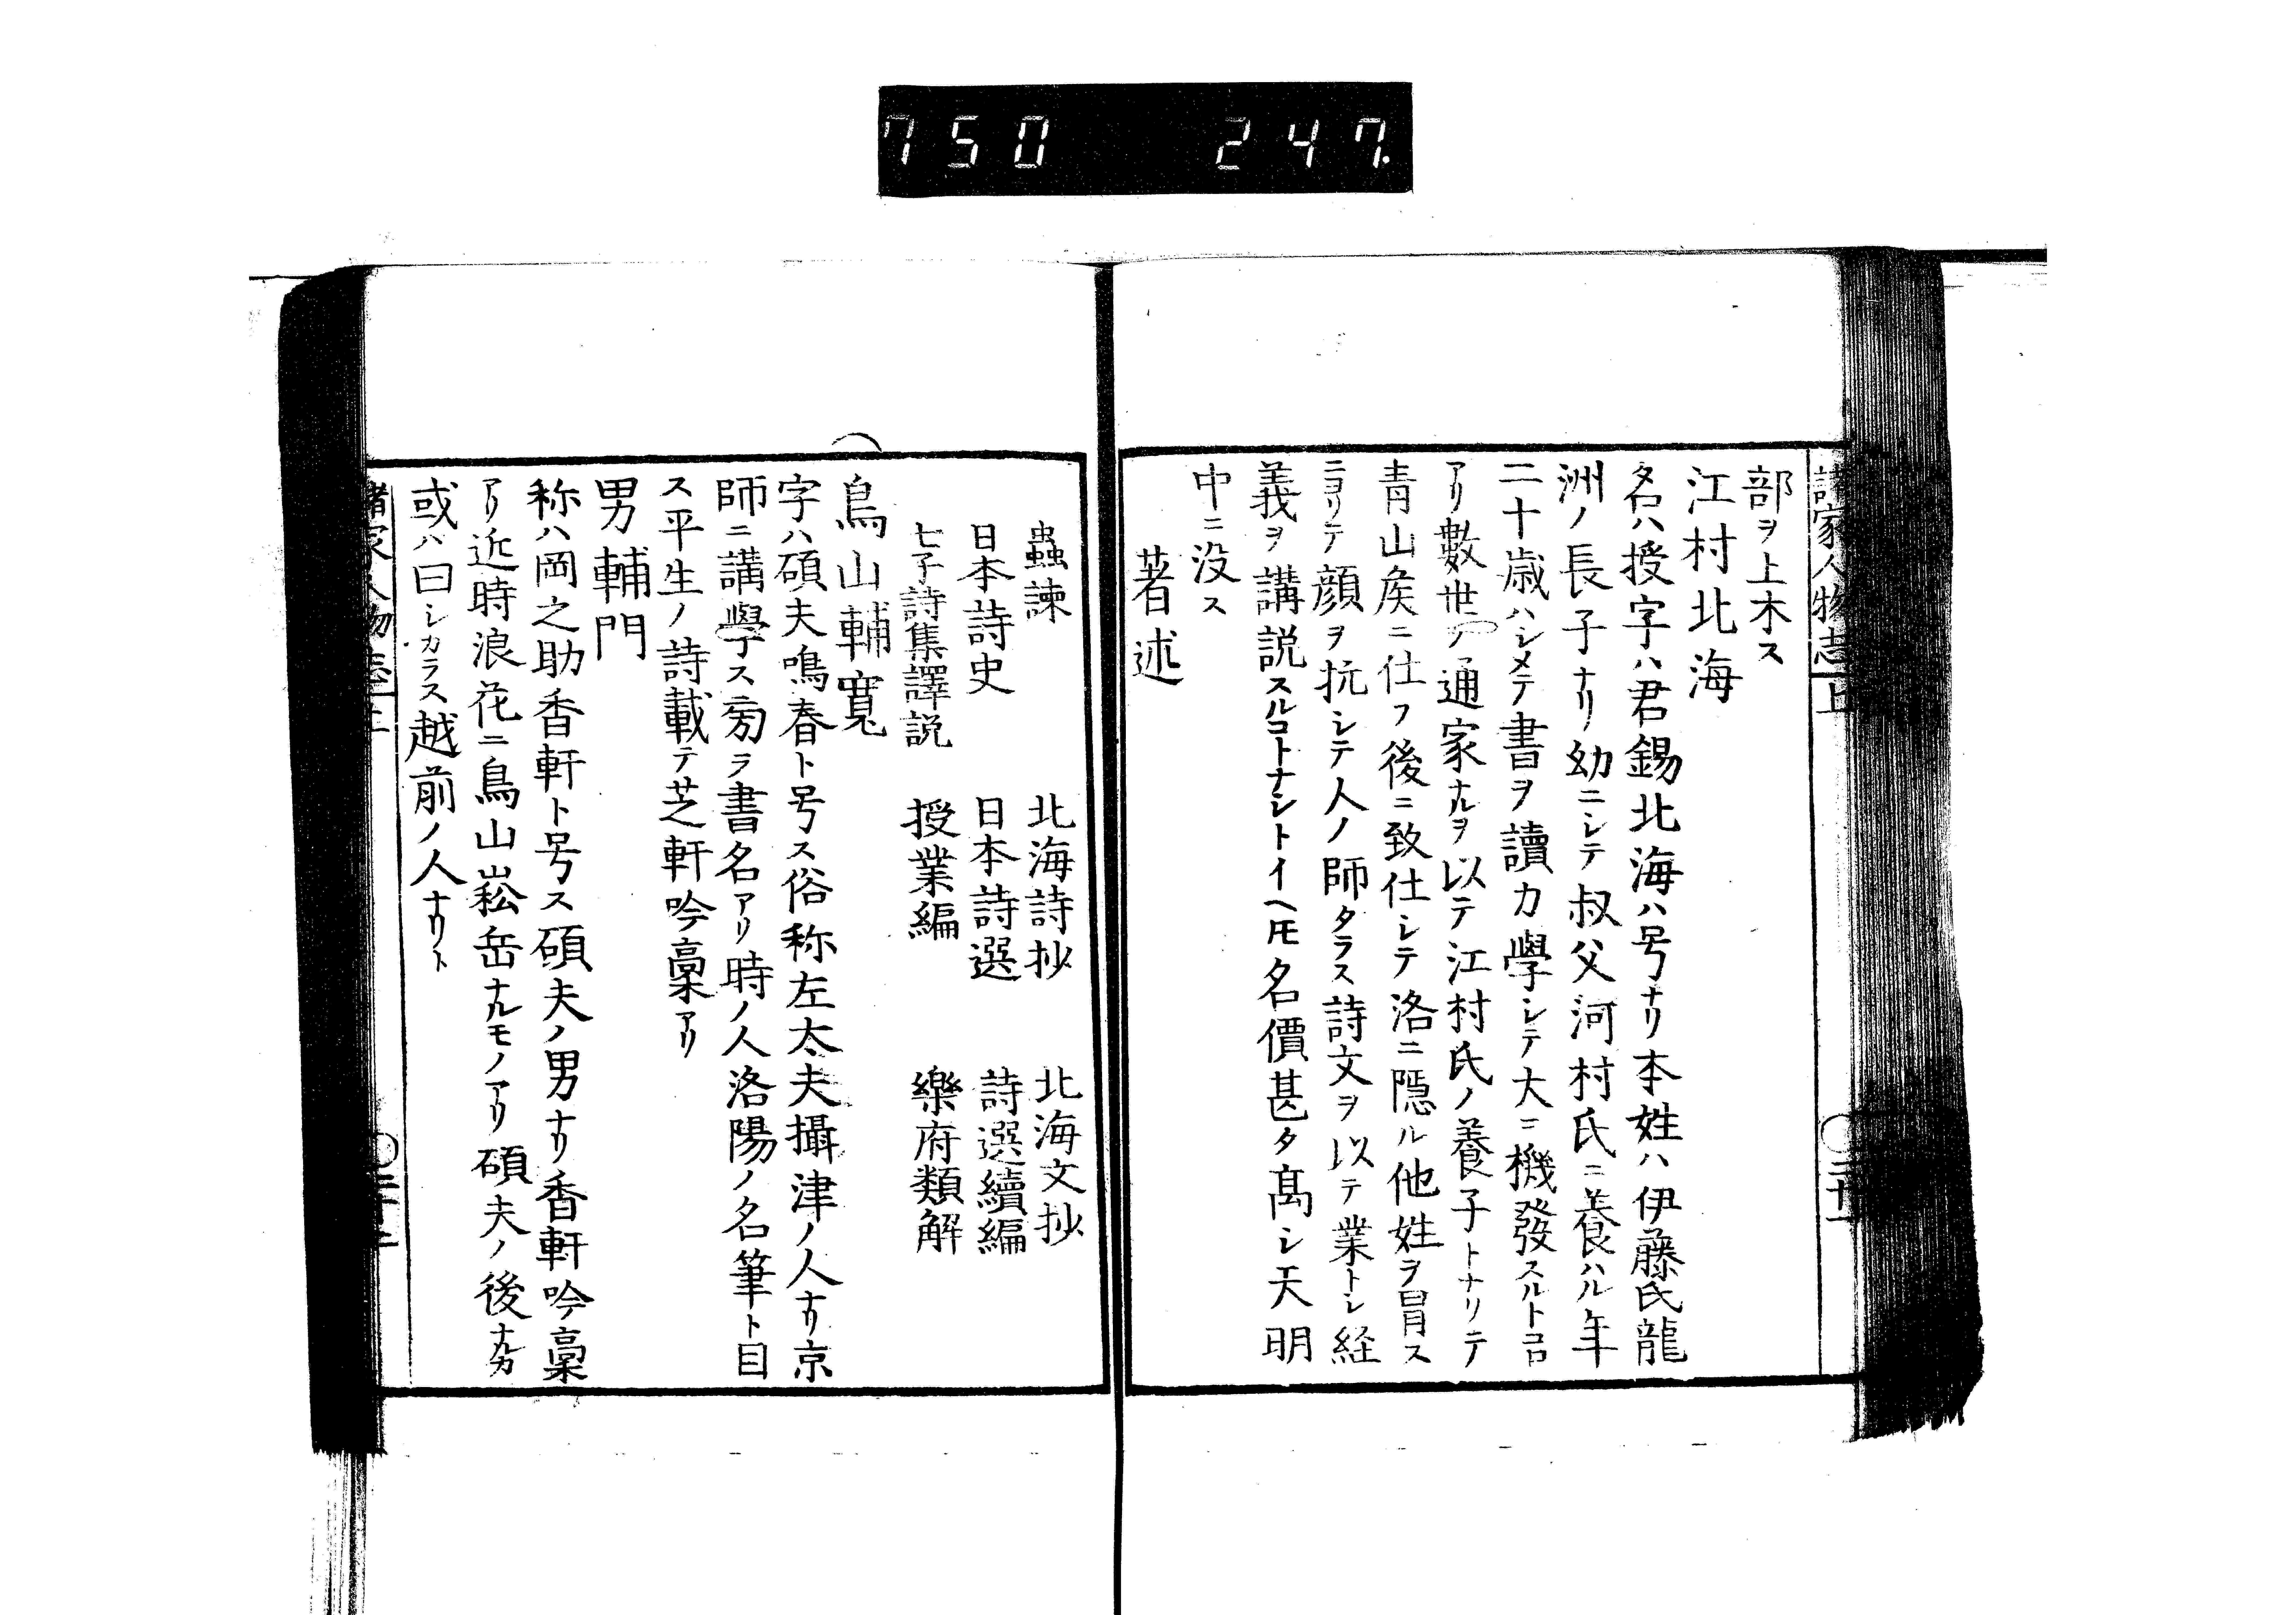 750 247.
諸家人物志 上
部ヲ上木ス
江村北海
名ハ授字ハ君錫北海ハ号ナリ本姓ハ伊藤氏龍
洲ノ長子ナリ幼ニシテ叔父河村氏ニ養ハル年
二十歳ハシメテ書ヲ讀力學シテ大ニ機發スルトコロ
アリ數世ノ通家ナルヲ以テ江村氏ノ養子トナリテ
青山矦ニ仕フ後ニ致仕シテ洛ニ隠ル他姓ヲ冒ス
ニヨリテ顔ヲ抗シテ人ノ師タラス詩文ヲ以テ業トシ経
義ヲ講説スルコトナシトイヘ𪜈名價甚タ髙シ天明
中ニ没ス
著述
蟲諫 北海詩抄 北海文抄
日本詩史 日本詩選 詩選續編
七子詩集譯説 授業編 樂府類解
鳥山輔寬
字ハ碩夫鳴春ト号ス俗称左太夫攝津ノ人ナリ京
師ニ講學ス㫄ラ書名アリ時ノ人洛陽ノ名筆ト目
ス平生ノ詩載テ芝軒吟稾アリ
男輔門
称ハ岡之助香軒ト号ス碩夫ノ男ナリ香軒吟稾
アリ近時浪花ニ鳥山崧岳ナルモノアリ碩夫ノ後ナルカ
或ハ曰シカラス越前ノ人ナリト
諸家人物志 上